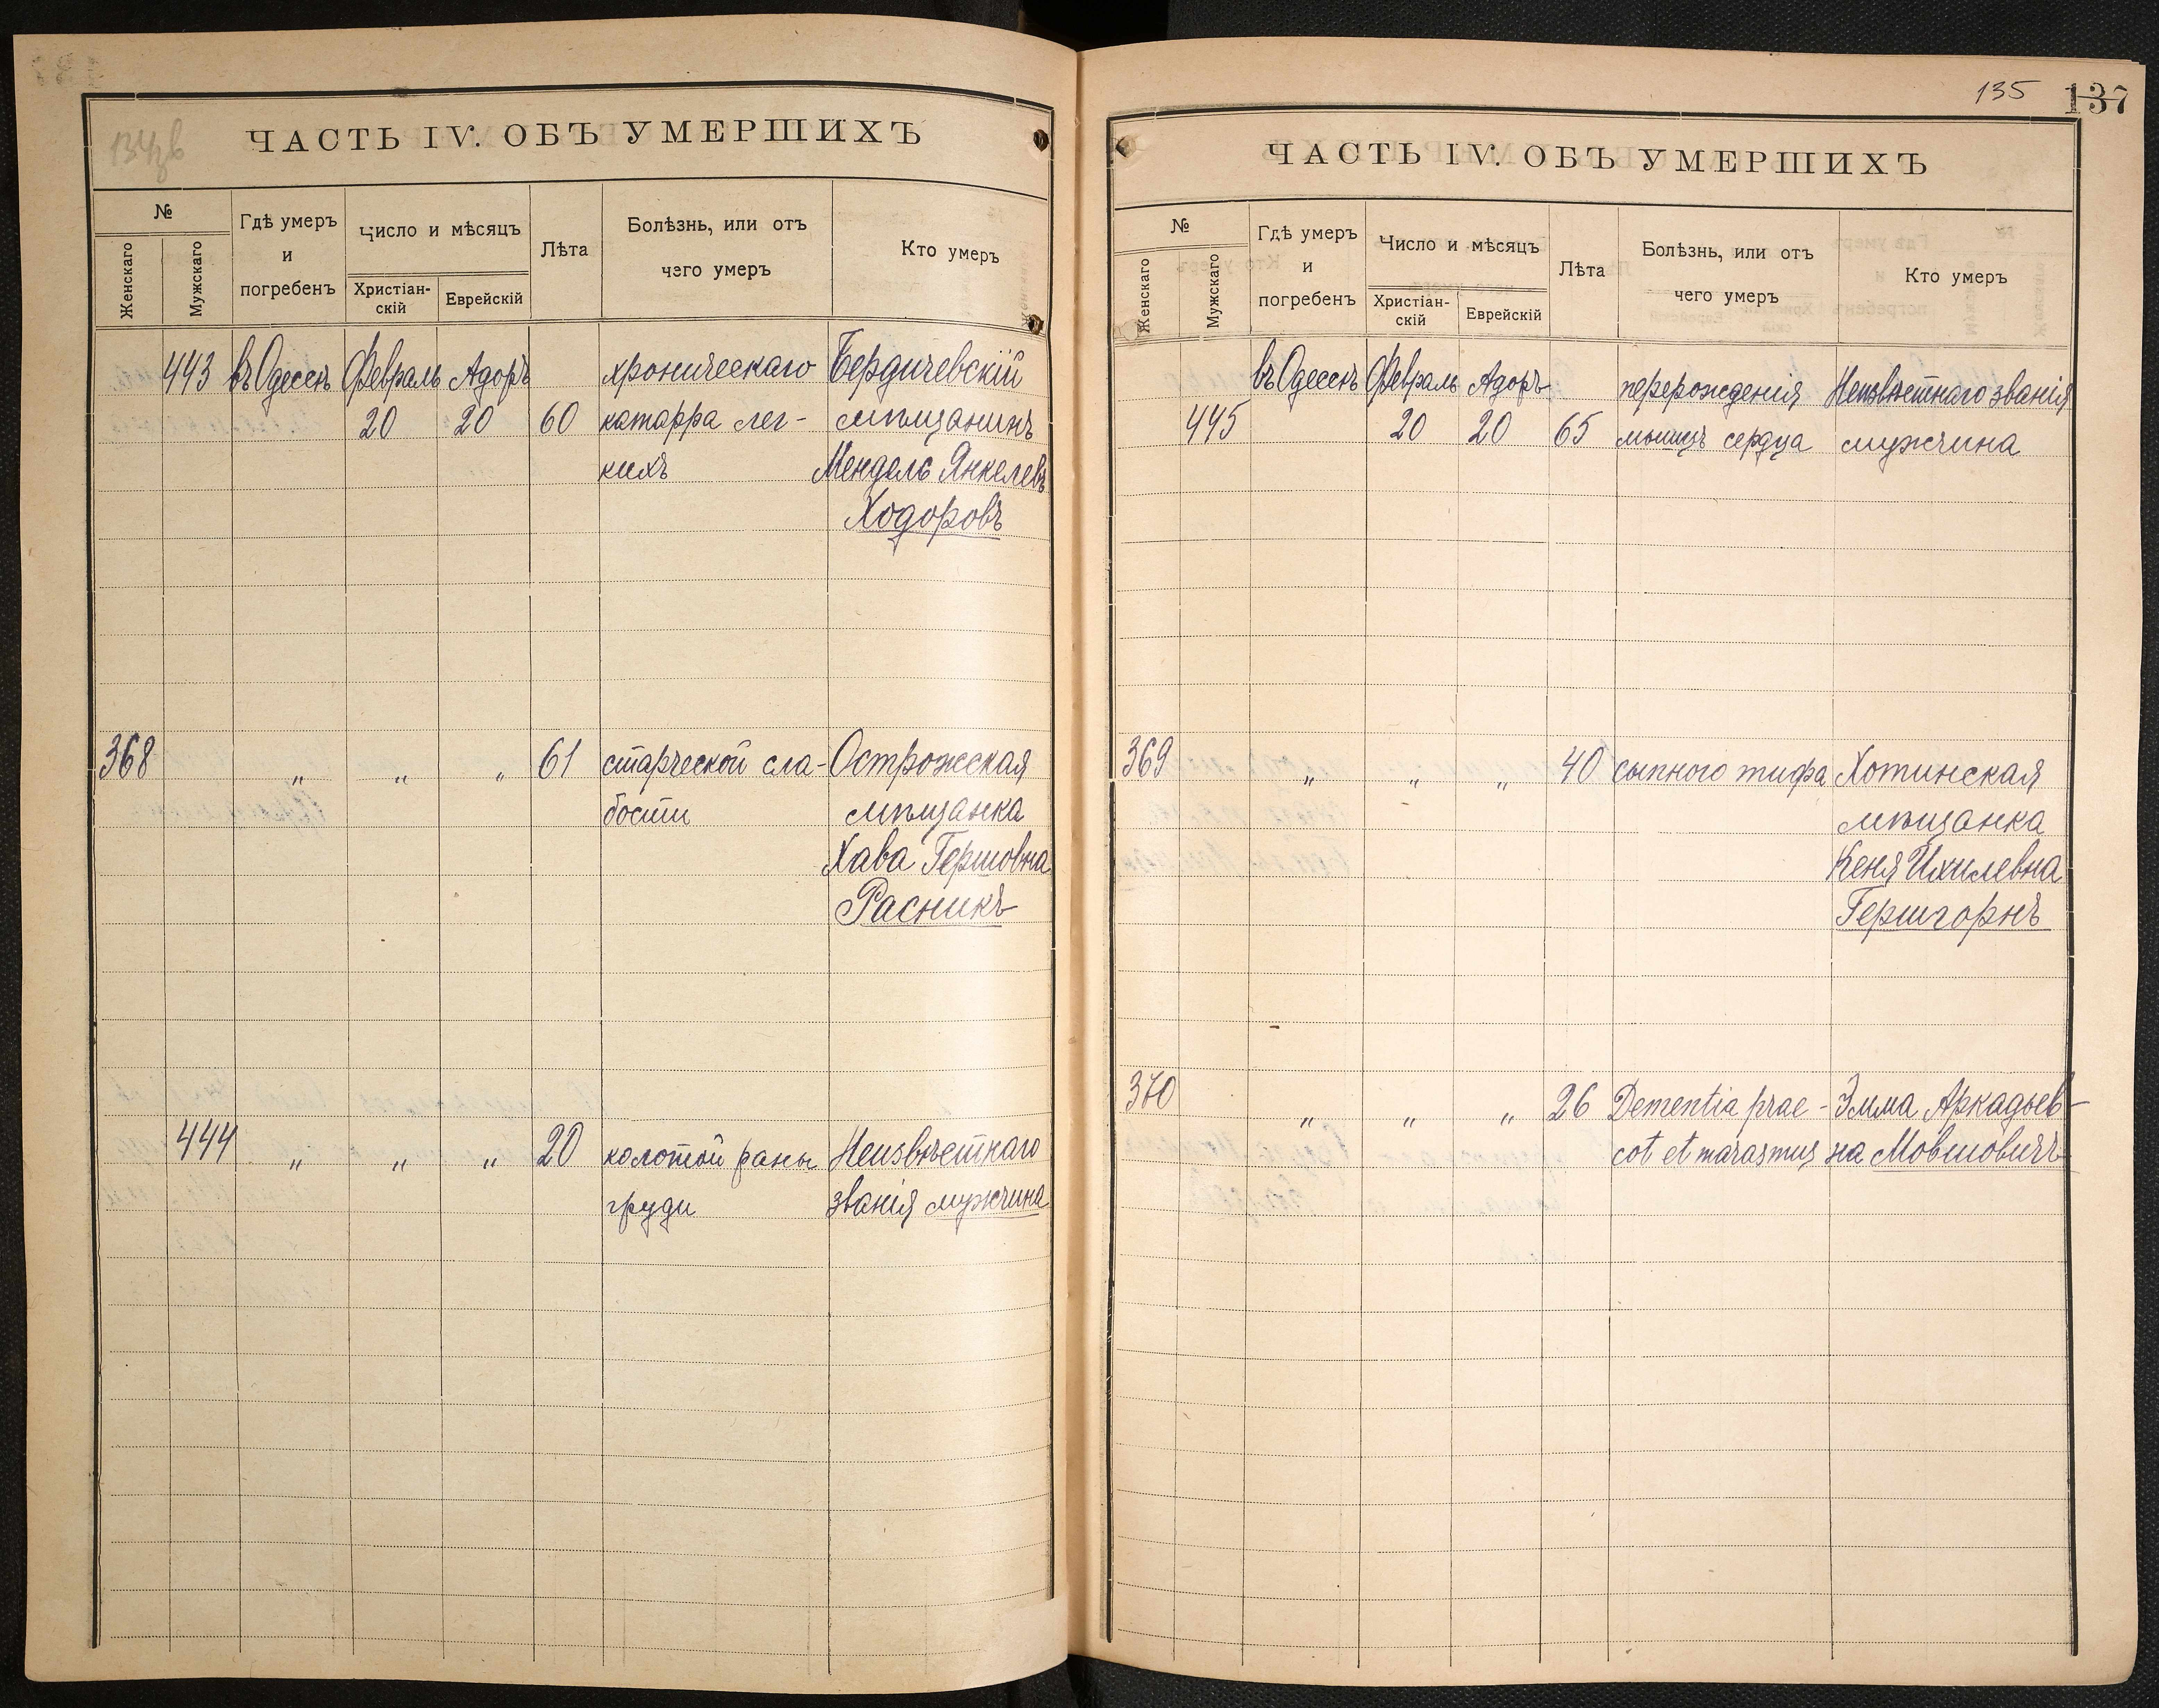 134 зв
ЧАСТЬ IV. ОБЪ УМЕРШИХЪ
№
Женскаго
Мужскаго
Гдѣ умеръ
и
погребенъ
Число и мѣсяцъ
Христіан-
скій
Еврейскій
Лѣта
Болѣзнь, или отъ
чего умеръ
Кто умеръ
443 въ Одессѣ Февраль Адоръ хроническаго Бердичевскій
20 20 60 катарра лег- мѣщанинъ
кихъ Мендель Янкелевъ
Ходоровъ
368 " " " 61 старческой сла- Острожская
бости мѣщанка
Хава Гершовна
Расникъ
444 " " " 20 колотой раны Неизвѣстнаго
груди званія мужчина
135 137
ЧАСТЬ IV. ОБЪ УМЕРШИХЪ
№
Женскаго
Мужскаго
Гдѣ умеръ
и
погребенъ
Число и мѣсяцъ
Христіан-
скій
Еврейскій
Лѣта
Болѣзнь, или отъ
чего умеръ
Кто умеръ
въ Одессѣ Февраль Адоръ перерожденія Неизвѣстнаго званія
445 20 20 65 мышцъ сердца мужчина
369 " " " 40 сыпного тифа Хотинская
мѣщанка
Кеня Ихилевна
Гершгорнъ
370 " " " 26 Dementia prae- Эмма Аркадьев-
cot et marasmus на Мовшовичъ